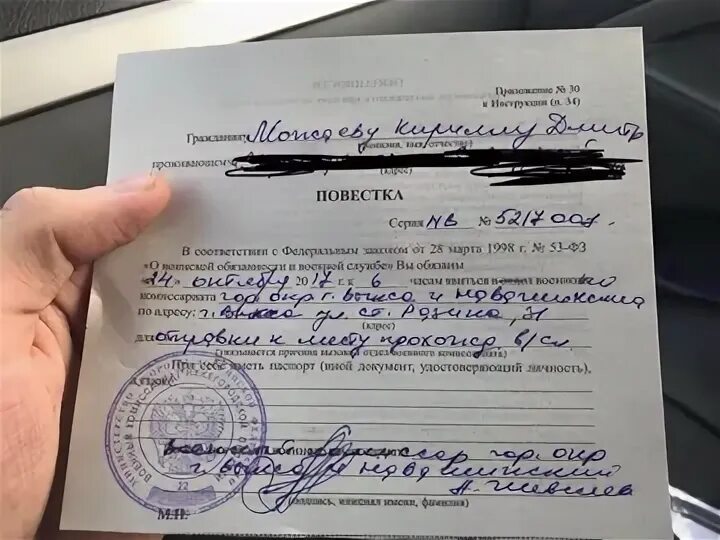 Приложение № 30
к Инструкции (п. 34)
Гражданину Мокееву Кириллу Дмитр
(фамилия, имя, отчество)
проживающему
(адрес)
ПОВЕСТКА
Серия НВ № 5217007.
В соответствии с Федеральным законом от 28 марта 1998 г. № 53-ФЗ
«О воинской обязанности и военной службе» Вы обязаны
24 октября 2017 г. к 6 часам явиться в военного
комиссариата гор. окр г. Выкса и Навашинский
по адресу: г. Выкса ул. Ст. Разина, 31
(адрес)
для отправки к месту прохожд. в/сл.
(указывается причина вызова в отдел военного комиссариата)
При себе иметь паспорт (иной документ, удостоверяющий личность),
гор. окр
г. Выкса и Навашинский
(подпись, инициал имени, фамилия)
М.П.
22